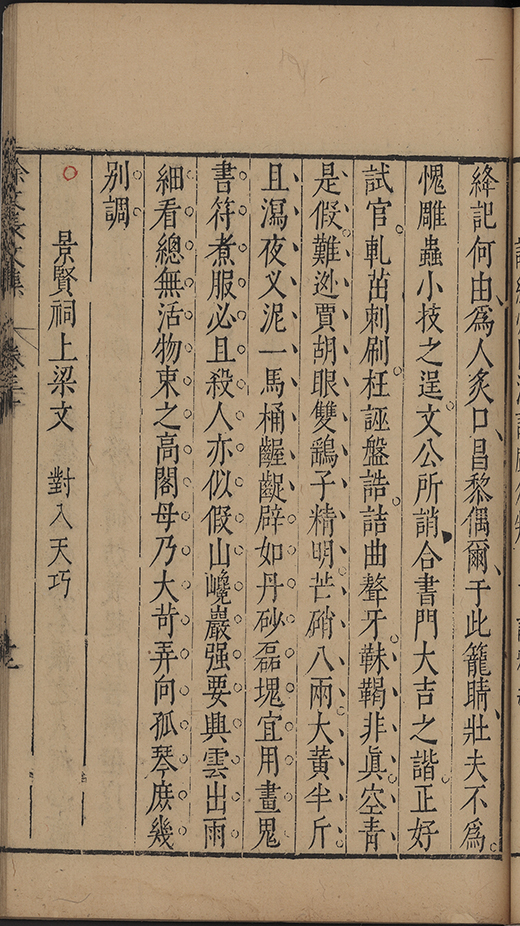 絳記何由爲人炙口昌黎偶爾于此籠睛壯夫不爲
愧雕蟲小技之逞文公所誚合書門大吉之諧正好
試官軋茁刺刷枉誣盤誥詰曲聱牙靺鞨非眞空青
是假難迯賈胡眼雙鷂子精明芒硝八兩大黄半斤
且瀉夜义泥一馬桶齷齪辟如丹砂磊塊宜用畫鬼
書符煮服必且殺人亦似假山巉巖强要興雲出雨
細看總無活物束之高閣毋乃大苛弄向孤琴庶幾
別調
景賢祠上梁文 對入天巧
徐文長文集 卷三十